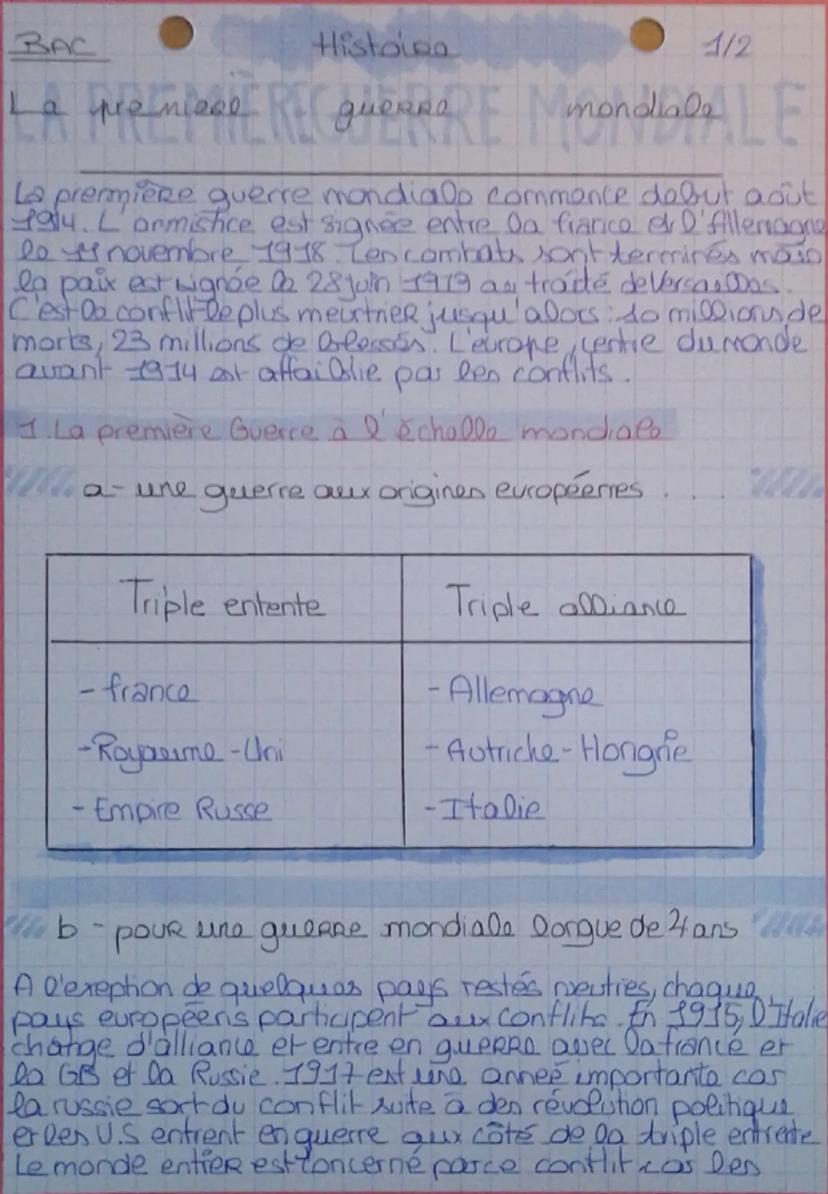 BAC Histoire 1/2
LA PREMIÈRE GUERRE MONDIALE
La première guerre mondiale
La premmière guerre mondiale commence début août
1914. L'armistice est signée entre la france et l'Allemagne
le 11 novembre 1918. Les combats sont terminés mais
la paix est signée le 28 juin 1919 au traité de Versailles.
C'est le conflit le plus meurtrier jusqu'alors : 10 millions de
morts, 23 millions de blessés. L'europe, centre du monde
avant 1914 est affaiblie par les conflits.
1. La première Guerre à l'échelle mondiale
a - une guerre aux origines européennes . . .
Triple entente Triple alliance
- france - Allemagne
- Royaume-Uni - Autriche-Hongrie
- Empire Russe - Italie
b - pour une guerre mondiale longue de 4 ans
A l'exeption de quelques pays restés neutres, chaque
pays européens participent aux conflits. En 1915, l'Italie
change d'alliance et entre en guerre avec la france et
la GB et la Russie. 1917 est une année importante car
la russie sort du conflit suite à des révolution politique
et les U.S entrent en guerre aux côté de la triple entente
Le monde entier est concerné par ce conflit car les